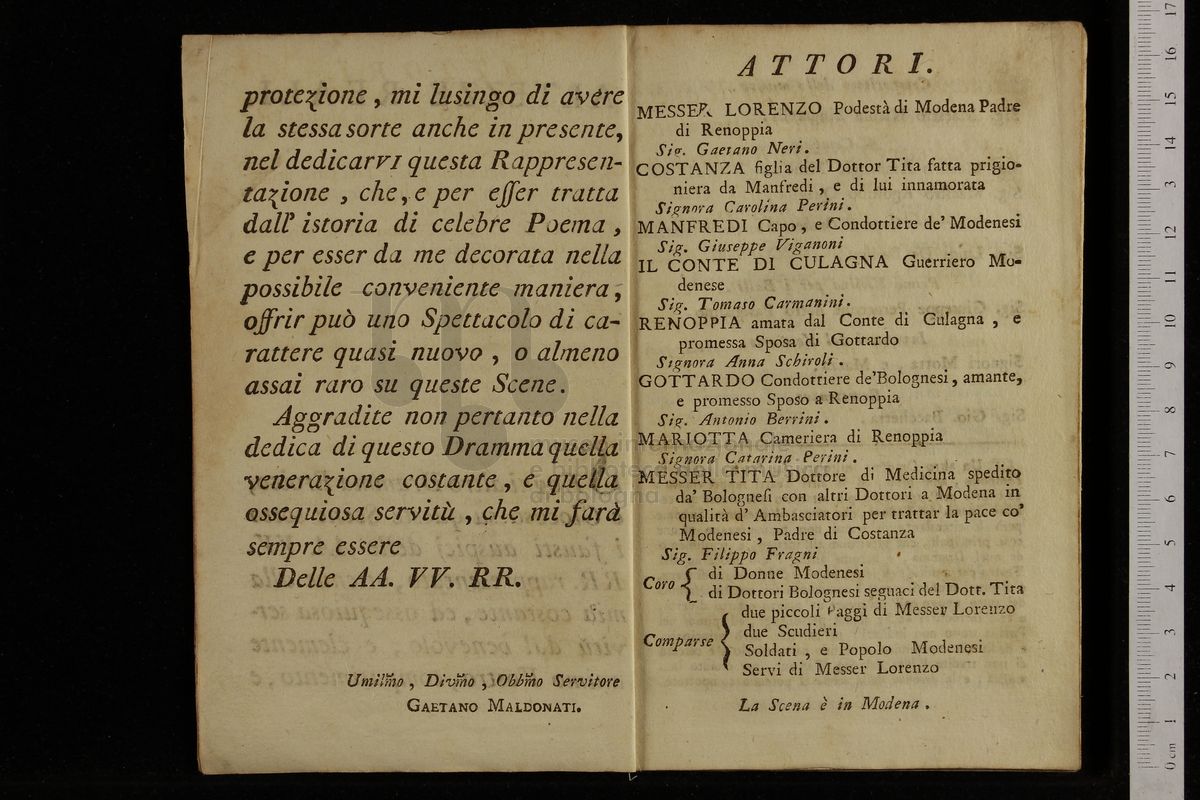 protezione, mi lusingo di avere
la stessa sorte anche in presente,
nel dedicarVI questa Rappresen-
tazione, che, e per eſſer tratta
dall' istoria di celebre Poema,
e per esser da me decorata nella
possibile conveniente maniera,
offrir può uno Spettacolo di ca-
rattere quasi nuovo, o almeno
assai raro su queste Scene.
Aggradite non pertanto nella
dedica di questo Dramma quella
venerazione costante, e quella
ossequiosa servitù, che mi farà
sempre essere
Delle AA. VV. RR.
Umilm̃o, Divm̃o, Obbm̃o Servitore
GAETANO MALDONATI.
ATTORI.
MESSER LORENZO Podestà di Modena Padre
di Renoppia
Sig. Gaetano Neri.
COSTANZA figlia del Dottor Tita fatta prigio-
niera da Manfredi, e di lui innamorata
Signora Carolina Perini.
MANFREDI Capo, e Condottiere de' Modenesi
Sig. Giuseppe Viganoni
IL CONTE DI CULAGNA Guerriero Mo-
denese
Sig. Tomaso Carmanini.
RENOPPIA amata dal Conte di Culagna, e
promessa Sposa di Gottardo
Signora Anna Schiroli.
GOTTARDO Condottiere de'Bolognesi, amante,
e promesso Sposo a Renoppia
Sig. Antonio Berrini.
MARIOTTA Cameriera di Renoppia
Signora Catarina Perini.
MESSER TITA Dottore di Medicina spedito
da' Bologneſi con altri Dottori a Modena in
qualità d' Ambasciatori per trattar la pace co'
Modenesi, Padre di Costanza
Sig. Filippo Fragni
Coro { di Donne Modenesi
di Dottori Bolognesi seguaci del Dott. Tita
Comparse { due piccoli Paggi di Messer Lorenzo
due Scudieri
Soldati, e Popolo Modenesi
Servi di Messer Lorenzo
La Scena è in Modena.